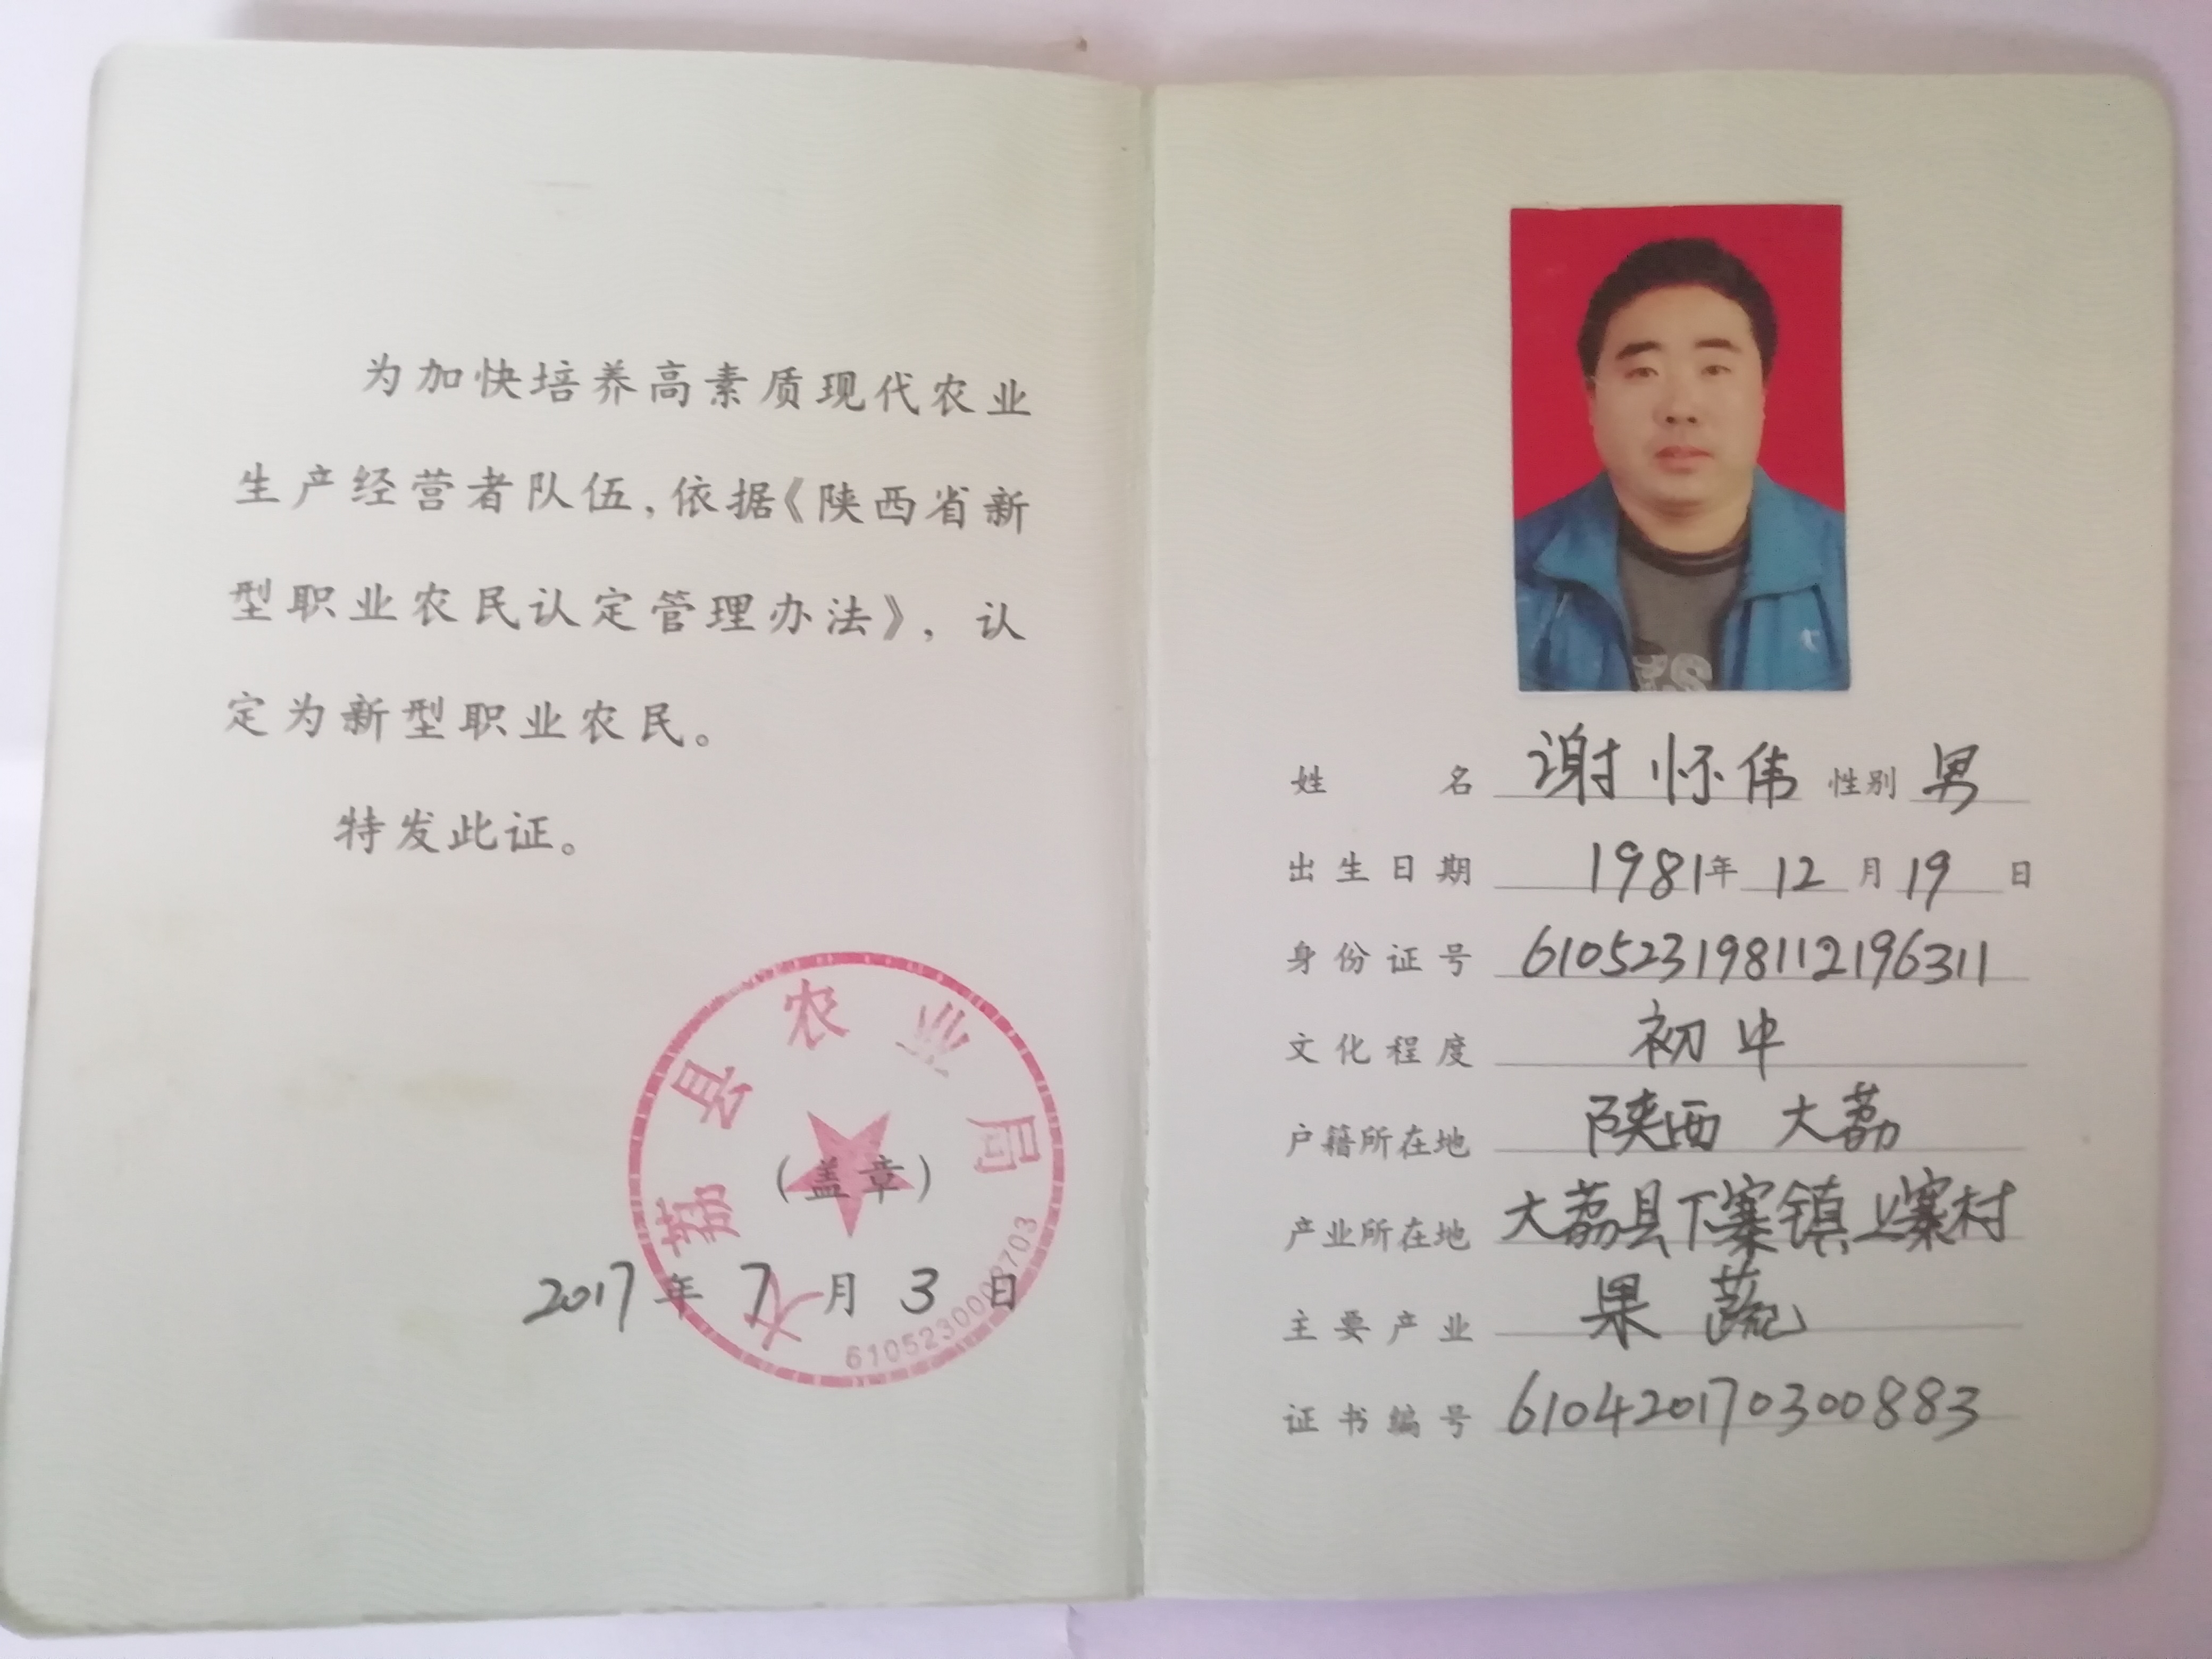 为加快培养高素质现代农业
生产经营者队伍,依据《陕西省新
型职业农民认定管理办法》, 认
定为新型职业农民。
特发此证。
大荔县农业局
(盖章)
2017年7月3日
姓名 谢怀伟 性别 男
出生日期 1981年12月19日
身份证号 610523198112196311
文化程度 初中
户籍所在地 陕西 大荔
产业所在地 大荔县下寨镇上寨村
主要产业 果蔬
证书编号 610420170300883